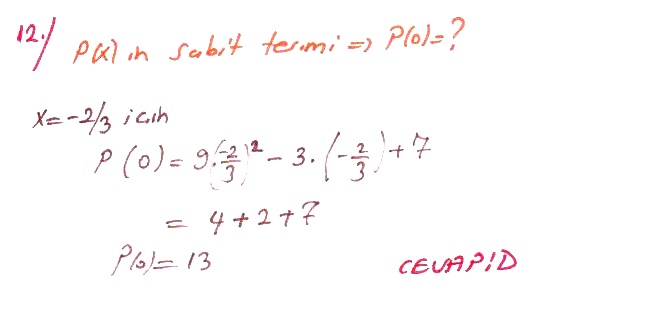 12./ P(x) in sabit terimi => P(0)=?
x=-2/3 için
P(0)=9.(-2/3)²-3.(-2/3)+7
= 4+2+7
P(0)=13
CEVAP:D